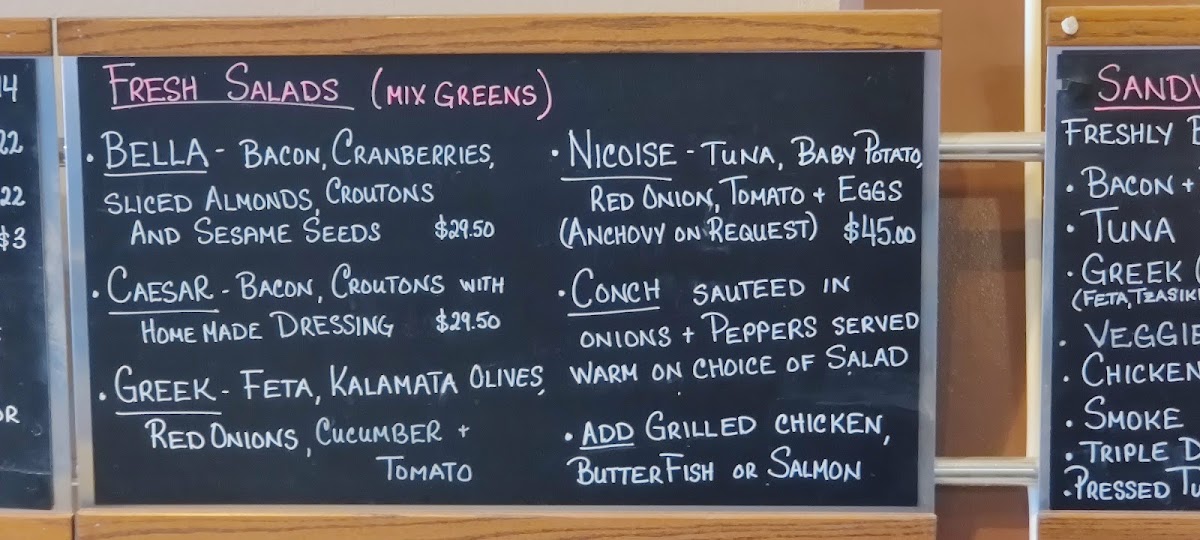 14
22
22
$3
OR
FRESH SALADS (MIX GREENS)
• BELLA - BACON, CRANBERRIES,
SLICED ALMONDS, CROUTONS
AND SESAME SEEDS $29.50
• CAESAR - BACON, CROUTONS WITH
HOME MADE DRESSING $29.50
• GREEK - FETA, KALAMATA OLIVES,
RED ONIONS, CUCUMBER +
TOMATO
• NICOISE - TUNA, BABY POTATO,
RED ONION, TOMATO + EGGS
(ANCHOVY ON REQUEST) $45.00
• CONCH SAUTEED IN
ONIONS + PEPPERS SERVED
WARM ON CHOICE OF SALAD
• ADD GRILLED CHICKEN,
BUTTERFISH OR SALMON
FRESHLY
• BACON +
• TUNA
• GREEK
(FETA,
• VEGGIE
• CHICKEN
• SMOKE
• TRIPLE
• PRESSED